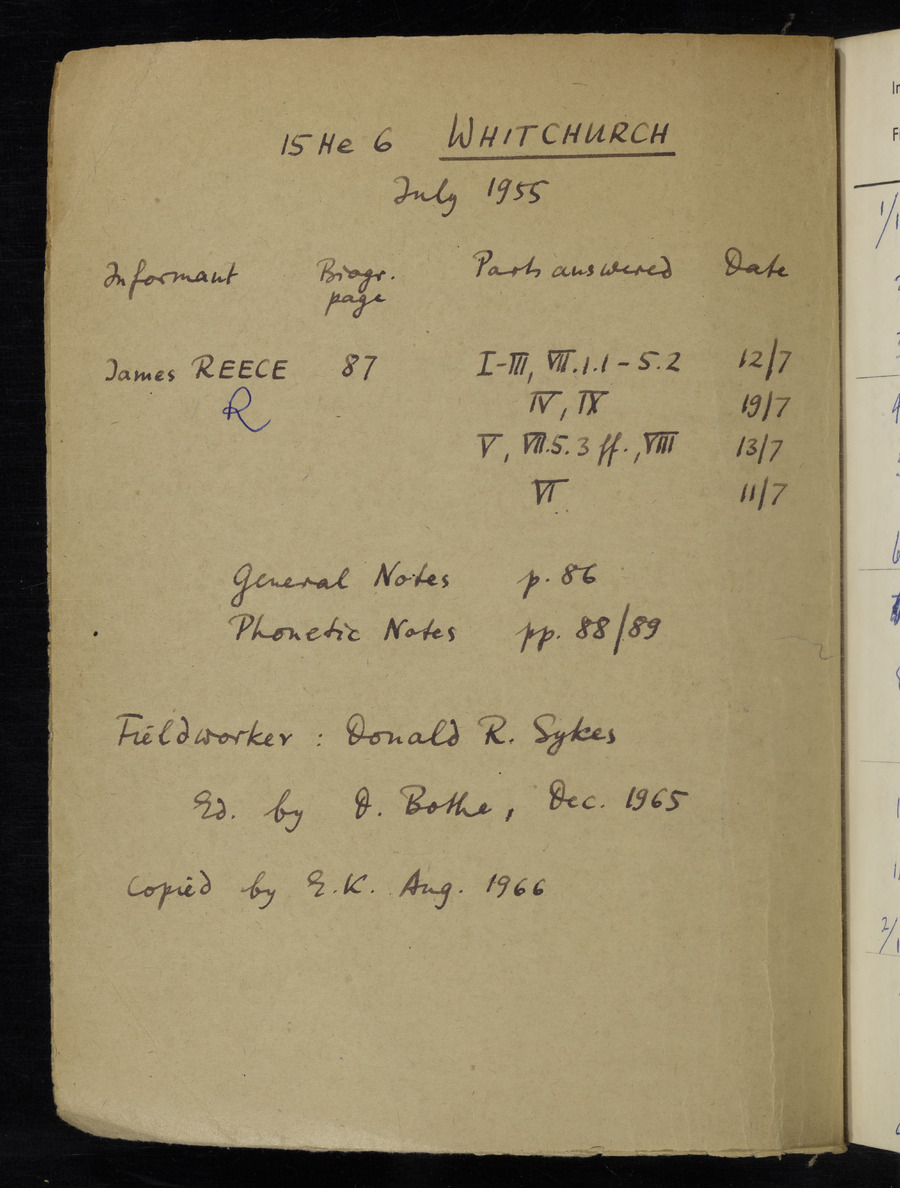 15 He 6 WHITCHURCH
July 1955
Informant Biogr. page Parts answered Date
James REECE 87 I-III, VII.1.1 - 5.2 12/7
R IV, IX 19/7
V, VII.5.3 ff., VIII 13/7
VI 11/7
General Notes p. 86
Phonetic Notes pp. 88/89
Fieldworker : Donald R. Sykes
Ed. by D. Bothe, Dec. 1965
Copied by E.K. Aug. 1966